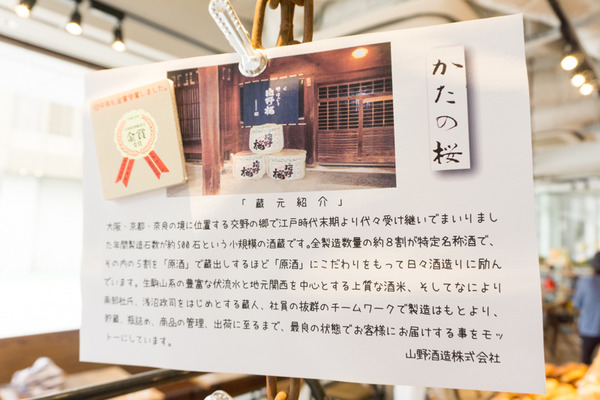 かたの桜
金賞
「蔵元紹介」
大阪・京都・奈良の境に位置する交野の郷で江戸時代末期より代々受け継いでまいりまし
た年間製造石数が約500石という小規模の酒蔵です。全製造数量の約8割が特定名称酒で、
その内の5割を「原酒」で蔵出しするほど「原酒」にこだわりをもって日々酒造りに励ん
でいます。生駒山系の豊富な伏流水と地元関西を中心とする上質な酒米、そしてなにより
南部杜氏、浅沼政司をはじめとする蔵人、社員の抜群のチームワークで製造はもとより、
貯蔵、瓶詰め、商品の管理、出荷に至るまで、最良の状態でお客様にお届けする事をモッ
トーにしています。
山野酒造株式会社